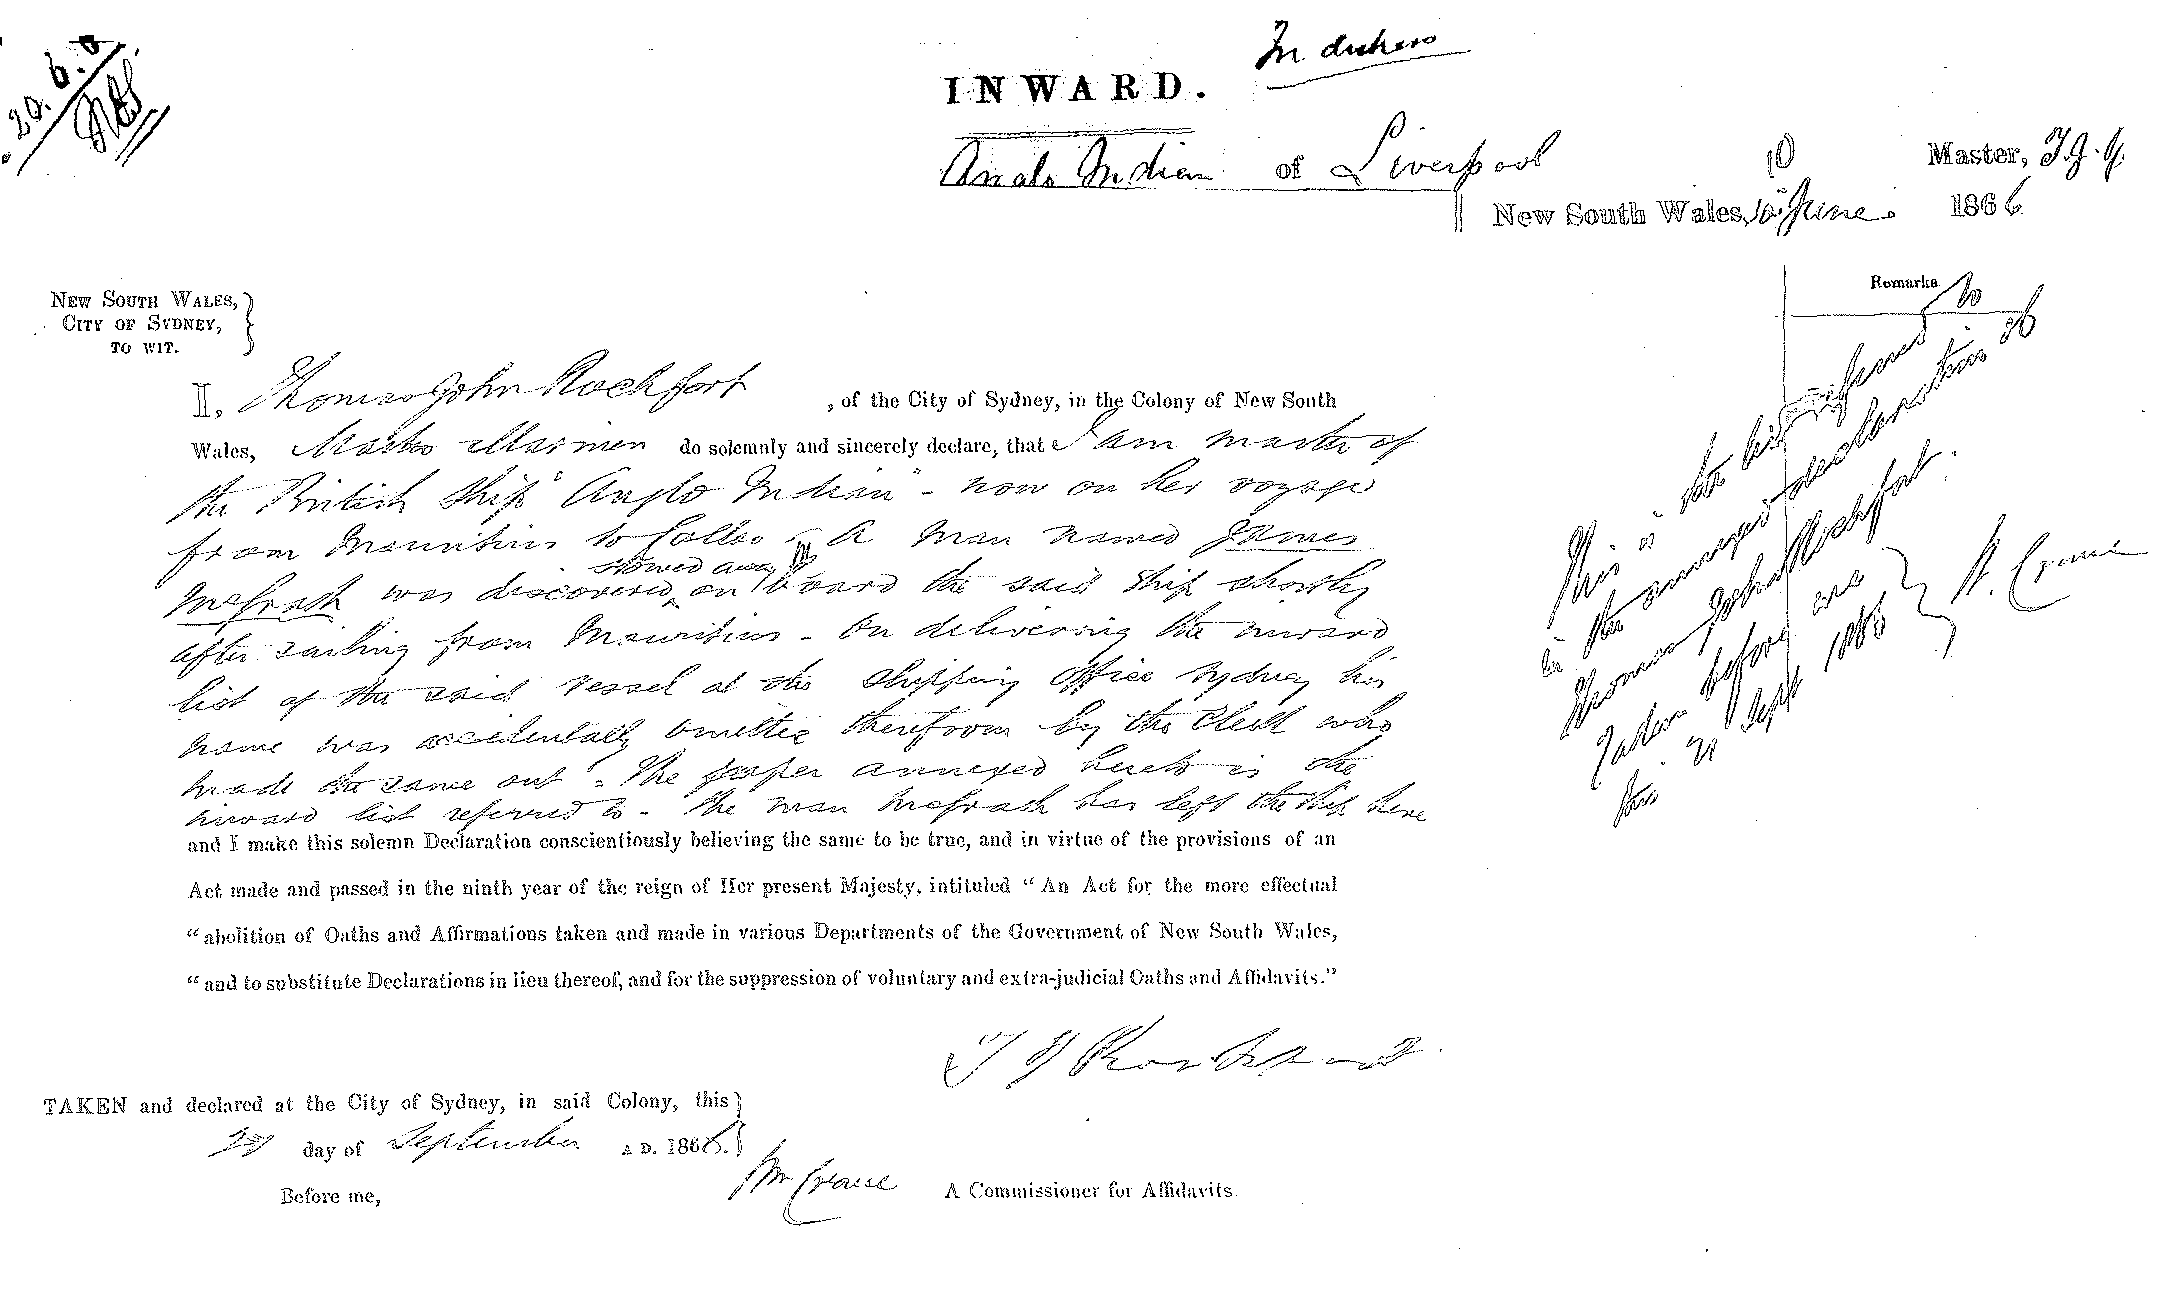 20.6.
In duckess
INWARD.
Anglo Indian of Liverpool
Master, T. J.
New South Wales, 10 June. 1866
NEW SOUTH WALES,
CITY OF SYDNEY,
TO WIT.
I, Thomas John Rochfort, of the City of Sydney, in the Colony of New South
Wales, Master Mariner do solemnly and sincerely declare, that I am master of
the British Ship "Anglo Indian" - now on her voyage
from Mauritius to - A man named James
stowed away
McGrath was discovered on board the said ship shortly
after sailing from Mauritius - On delivering the inward
list of the said vessel at the Shipping Office Sydney his
name was accidentally omitted therefrom by the Clerk who
made the same out - The paper annexed hereto is the
inward list referred to - The man McGrath has left the ship here
and I make this solemn Declaration conscientiously believing the same to be true, and in virtue of the provisions of an
Act made and passed in the ninth year of the reign of Her present Majesty, intituled "An Act for the more effectual
"abolition of Oaths and Affirmations taken and made in various Departments of the Government of New South Wales,
"and to substitute Declarations in lieu thereof, and for the suppression of voluntary and extra-judicial Oaths and Affidavits."
T J Rochfort
TAKEN and declared at the City of Sydney, in said Colony, this
21 day of September A D. 1866.
Before me, Wm Crane A Commissioner for Affidavits.
Remarks
This is the list referred to
in the annexed declaration of
Thomas John Rochfort.
Taken before me
this 21 Sept 1866
W. Crane